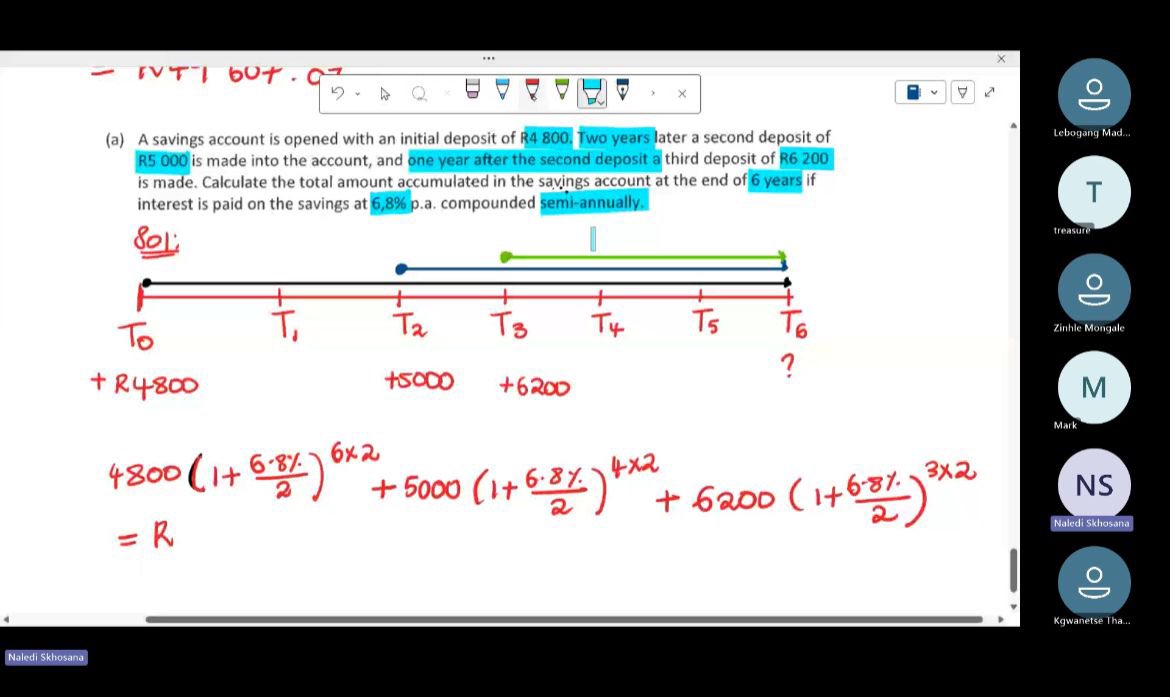 (a) A savings account is opened with an initial deposit of R4 800. Two years later a second deposit of
R5 000 is made into the account, and one year after the second deposit a third deposit of R6 200
is made. Calculate the total amount accumulated in the savings account at the end of 6 years if
interest is paid on the savings at 6,8% p.a. compounded semi-annually.
Sol:
T0 T1 T2 T3 T4 T5 T6
?
+ R4800 +5000 +6200
4800 (1 + 6.8%/2)^6x2 + 5000 (1 + 6.8%/2)^4x2 + 6200 (1 + 6.8%/2)^3x2
= R
Lebogang Mad...
T
treasure
Zinhle Mongale
M
Mark
NS
Naledi Skhosana
Kgwanetse Tha...
Naledi Skhosana